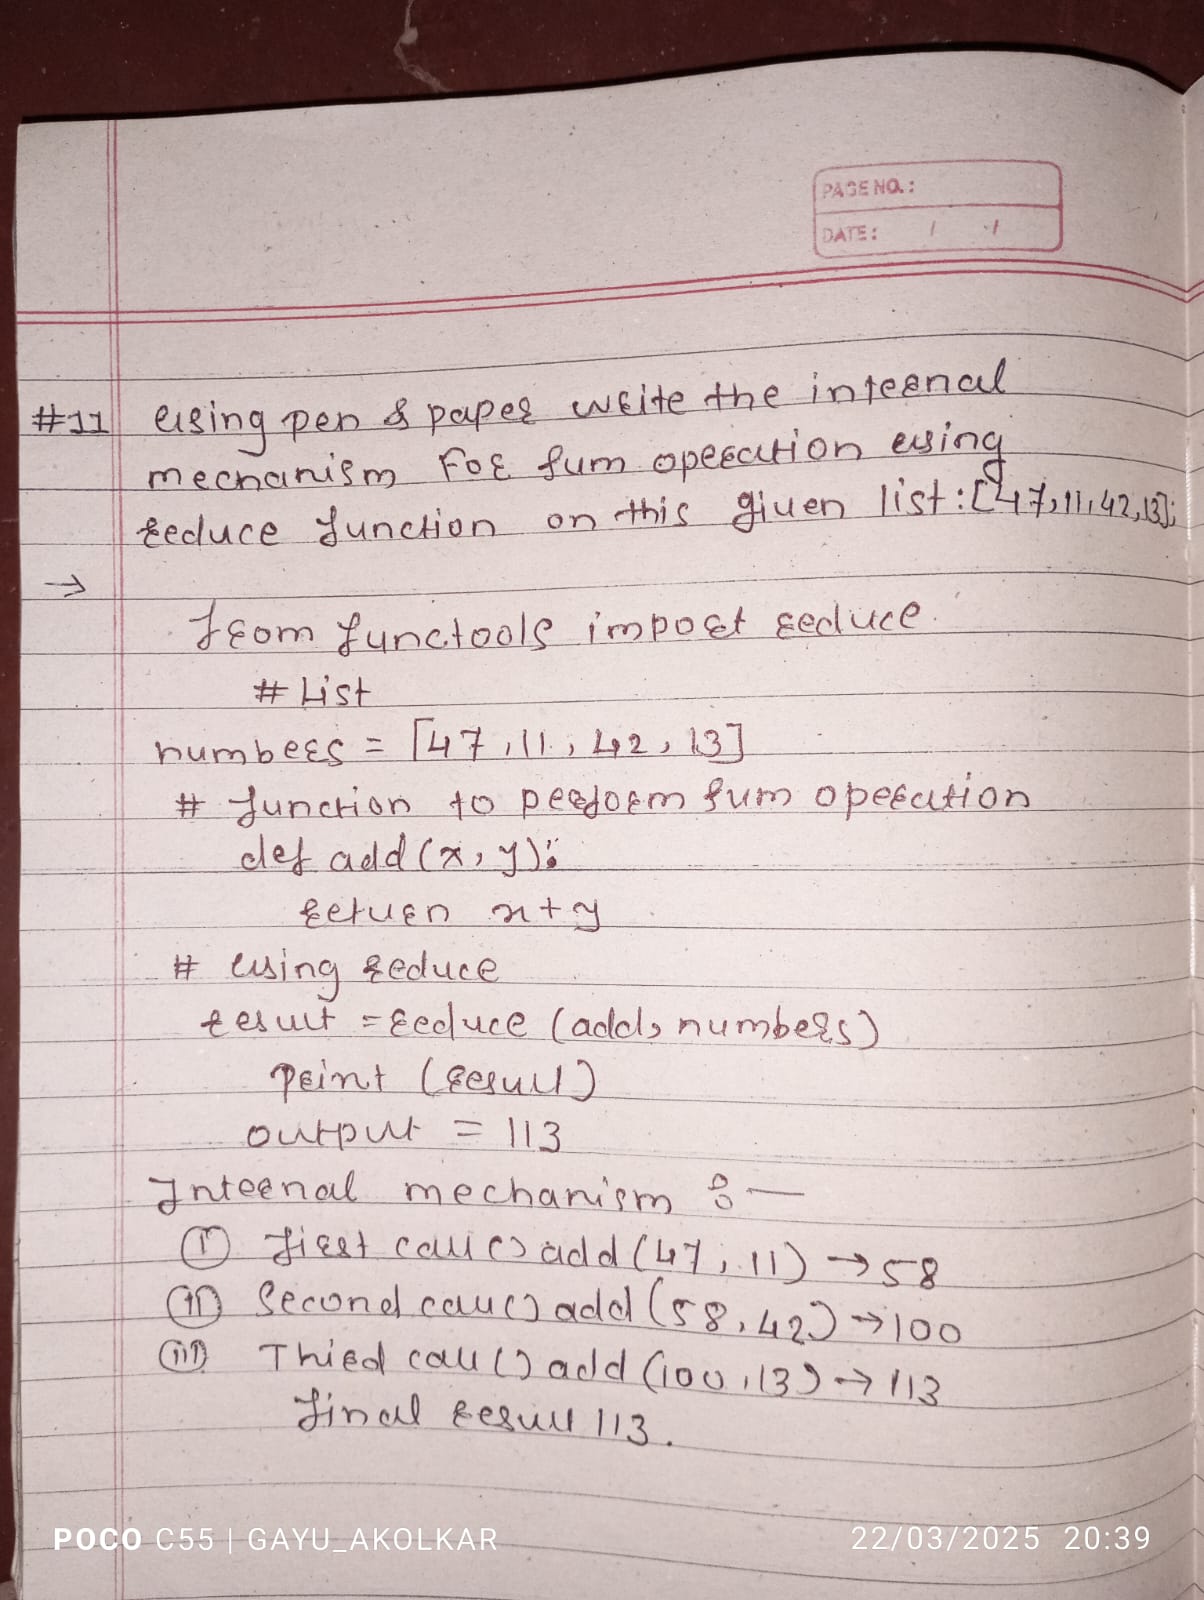 PAGE NO.:
DATE: / /
#11 Using pen & paper write the internal
mechanism For sum operation using
reduce function on this given list:[47,11,42,13];
→
from functools import reduce.
# List
numbers = [47, 11, 42, 13]
# function to perform sum operation
def add(x, y):
return x+y
# using reduce
result = reduce (add, numbers)
print (result)
output = 113
Internal mechanism :-
(i) first call () add (47, 11) → 58
(ii) Second call () add (58, 42) → 100
(iii) Third call () add (100, 13) → 113
final result 113.
POCO C55 | GAYU_AKOLKAR 22/03/2025 20:39